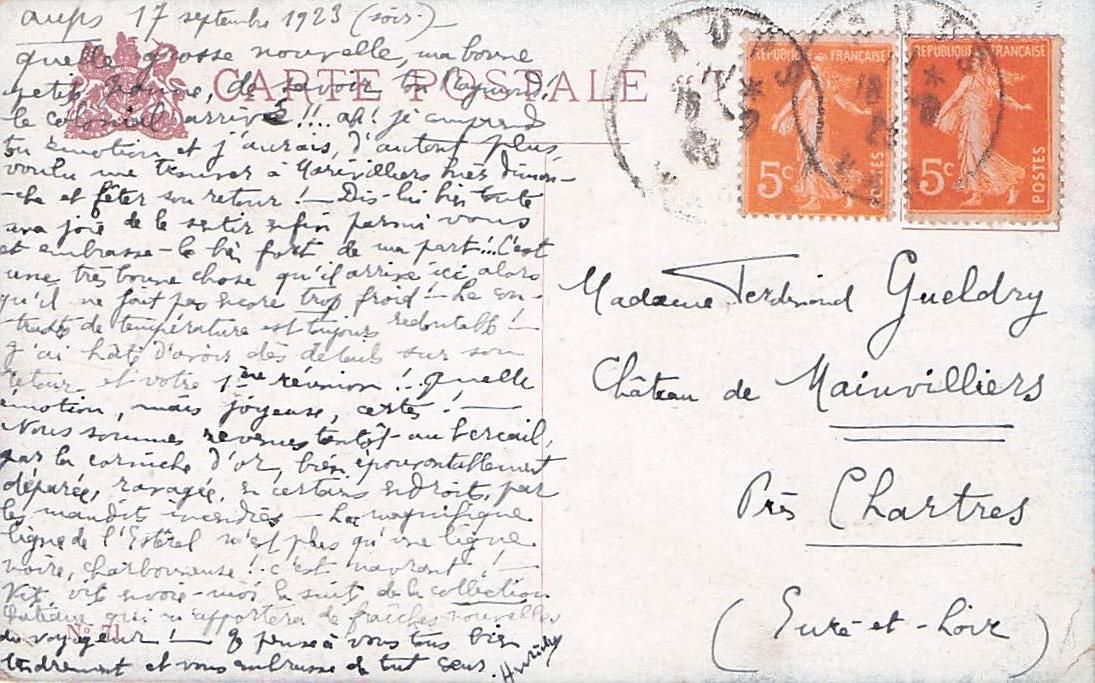 aups 17 septembre 1923 (soir)
quelle grosse nouvelle, ma bonne
petite, de savoir ton Raymond,
le colonial arrivé !!... ah! je comprends
ton émotion et j'aurais, d'autant plus,
voulu me trouver à Mainvilliers hier diman-
-che et fêter son retour ! — Dis-lui bien toute
ma joie de le sentir enfin parmi vous
et embrasse-le bien fort de ma part !.. C'est
une très bonne chose qu'il arrive ici alors
qu'il ne fait pas encore trop froid ! — Le con-
-traste de température est toujours redoutable ! —
J'ai hâte d'avoir des détails sur son
retour et votre 1ère réunion !.. Quelle
émotion, mais joyeuse, certes ! —
Nous sommes revenues tantôt au bercail,
par la corniche d'or, bien épouvantablement
déparée, ravagée, en certains endroits, par
les maudits incendies — La magnifique
ligne de l'Estérel n'est plus qu'une ligne
noire, charbonneuse ! c'est navrant ! —
Vite, vite envoie-moi la suite de la collection
qui m'apportera de fraîches nouvelles
du voyageur ! — Je pense à vous tous bien
tendrement et vous embrasse de tout cœur.
CARTE POSTALE
No. 71
AUPS
REPUBLIQUE FRANÇAISE
5c
POSTES
REPUBLIQUE FRANÇAISE
5c
POSTES
Madame Ferdinand Gueldry
Château de Mainvilliers
Près Chartres
(Eure-et-Loir)